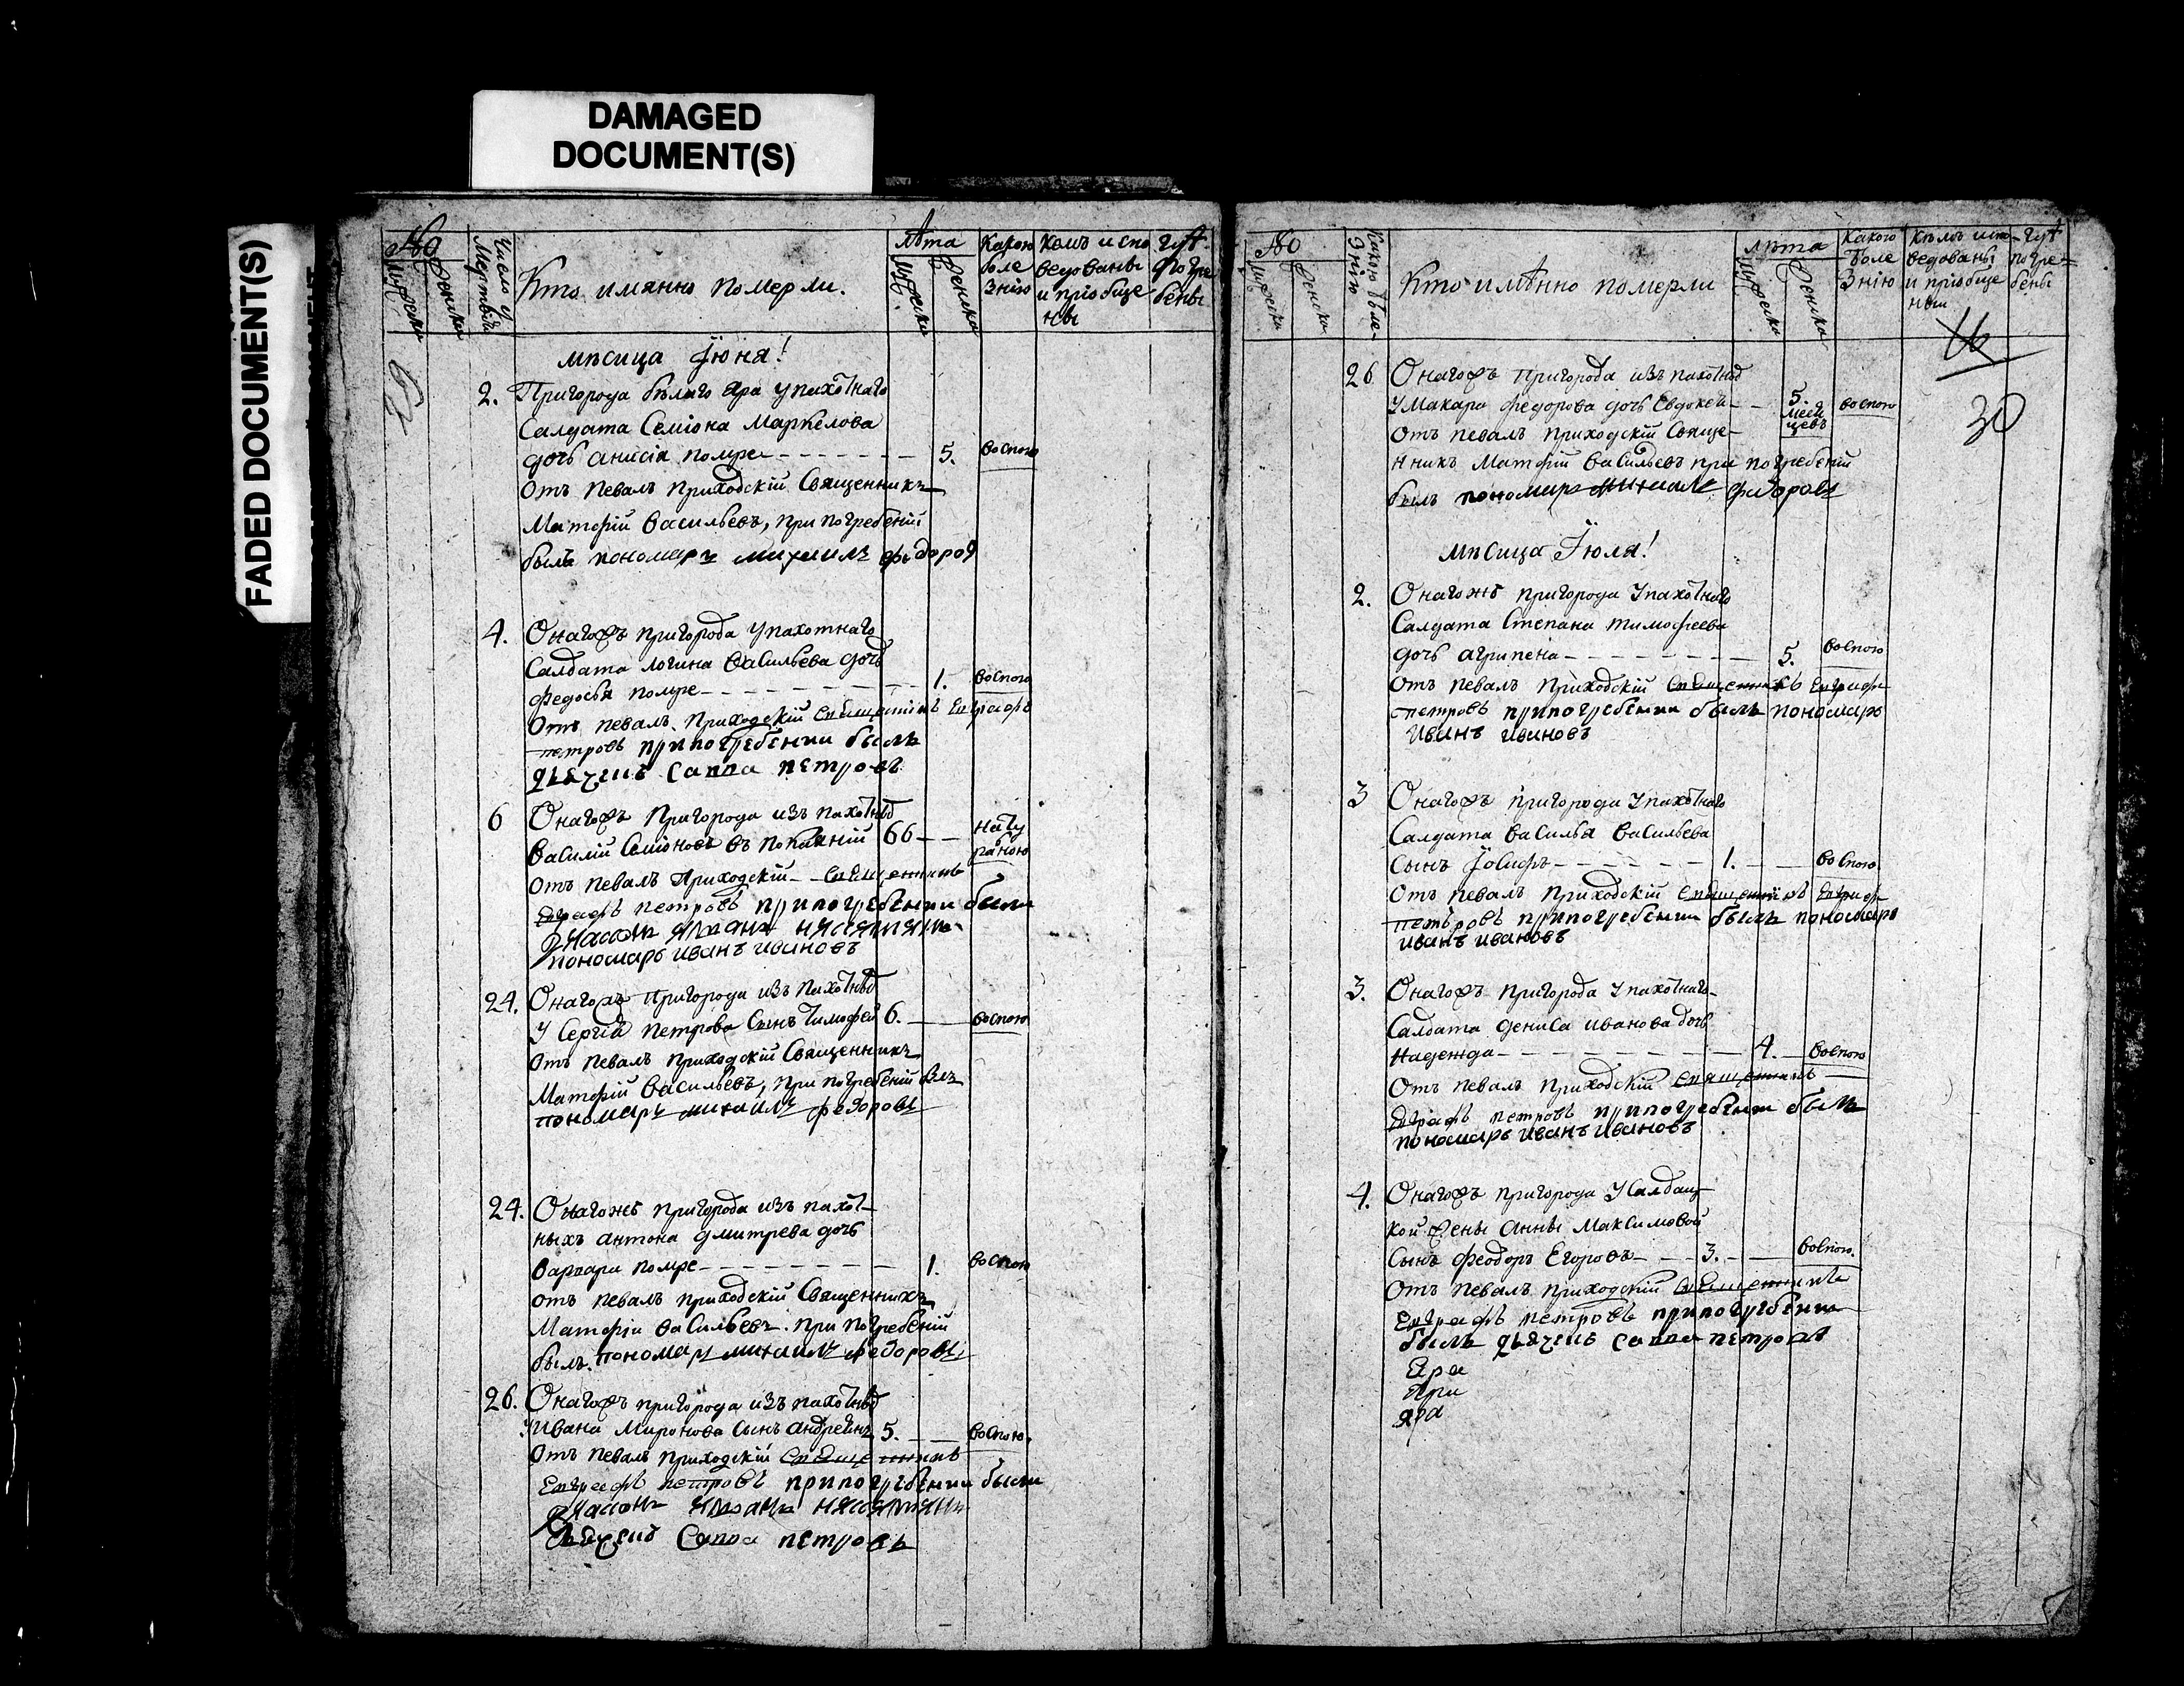 DAMAGED
DOCUMENT(S)
FADED DOCUMENT(S)
No
Число у Мертвiи
Кто имянно померли.
лѣта
Какою боле знiю
кемъ и спо ведованы и прiобще ны
гдѣ погре бены
62
мѣсица Iюня!
2. Пригорода бѣлаго Яра у пахотнаго
Салдата Семiона Маркелова
дочь анисiя помре 5. воспою
Отъ певалъ приходскiй Священникъ
Матфiй Васильевъ, при погребенiи
былъ пономарь михаилъ федоровъ
4. Онагожъ пригорода у пахотнаго
Салдата логина Васильева дочь
федосья помре 1. воспою
Отъ певалъ приходскiй священникъ Евграфъ
петровъ при погребении былъ
дьячекъ Савва петровъ
6 Онагожъ Пригорода изъ пахотныхъ
Василiй Семiоновъ въ покаянiй 66 нату ралною
Отъ певалъ Приходскiй священникъ
Евграфъ петровъ при погребении были
пономарь иванъ ивановъ
24. Онагожъ Пригорода изъ пахотныхъ
У Сергiя Петрова Сынъ Тимофей 6. воспою
Отъ певалъ приходскiй Священникъ
Матфiй Васильевъ, при погребенiй былъ
пономарь михаилъ федоровъ
24. Онагожъ пригорода изъ пахот-
ныхъ антона дмитрева дочь
варвара помре 1. воспою
отъ певалъ приходскiй Священникъ
Матфiи васильевъ. при погребенiй
былъ. пономарь михаилъ федоровъ
26. Онагожъ пригорода изъ пахотныхъ
У Ивана Миронова Сынъ андреянъ 5. воспою.
Отъ певалъ приходскiй священникъ
Евграфъ петровъ при погребении были
дьячекъ Савва петровъ
No
Какою боле- знiю
Кто имѣнно померли
лѣта
Какою боле знiю
кѣмъ испо- ведованы и прiобще ны
гдѣ погре- бены
16
30
26. Онагожъ пригорода изъ пахотныхъ
У Макара федорова дочь Евдокея 5. меся цевъ воспою
Отъ певалъ приходскiй Свяще-
нникъ Матфiй Васильевъ при погребенiй
былъ пономарь михаилъ федоровъ
мѣсица Iюля!
2. Онагожъ пригорода У пахотнаго
Салдата Степана тимофеева
дочь агрипена 5. воспою
Отъ певалъ приходскiй священникъ Евграфъ
петровъ при погребении былъ пономарь
Иванъ ивановъ
3 Онагожъ пригорода У пахотнаго
Салдата Василья Васильева
Сынъ Iосифъ 1. воспою
Отъ певалъ приходскiй священникъ Евграфъ
петровъ при погребении былъ пономарь
иванъ ивановъ
3. Онагожъ пригорода У пахотнаго-
Салдата Дениса иванова дочь
Надежда 4. воспою
Отъ певалъ приходскiй священникъ
Евграфъ петровъ при погребении былъ
пономарь иванъ ивановъ
4. Онагожъ пригорода У Салдац-
кой жены Анны Максимовой
Сынъ Феодоръ Егоровъ 3. воспою.
Отъ певалъ приходскiй священникъ
Евграфъ петровъ при погребении
былъ дьячекъ Савва петровъ
Яра